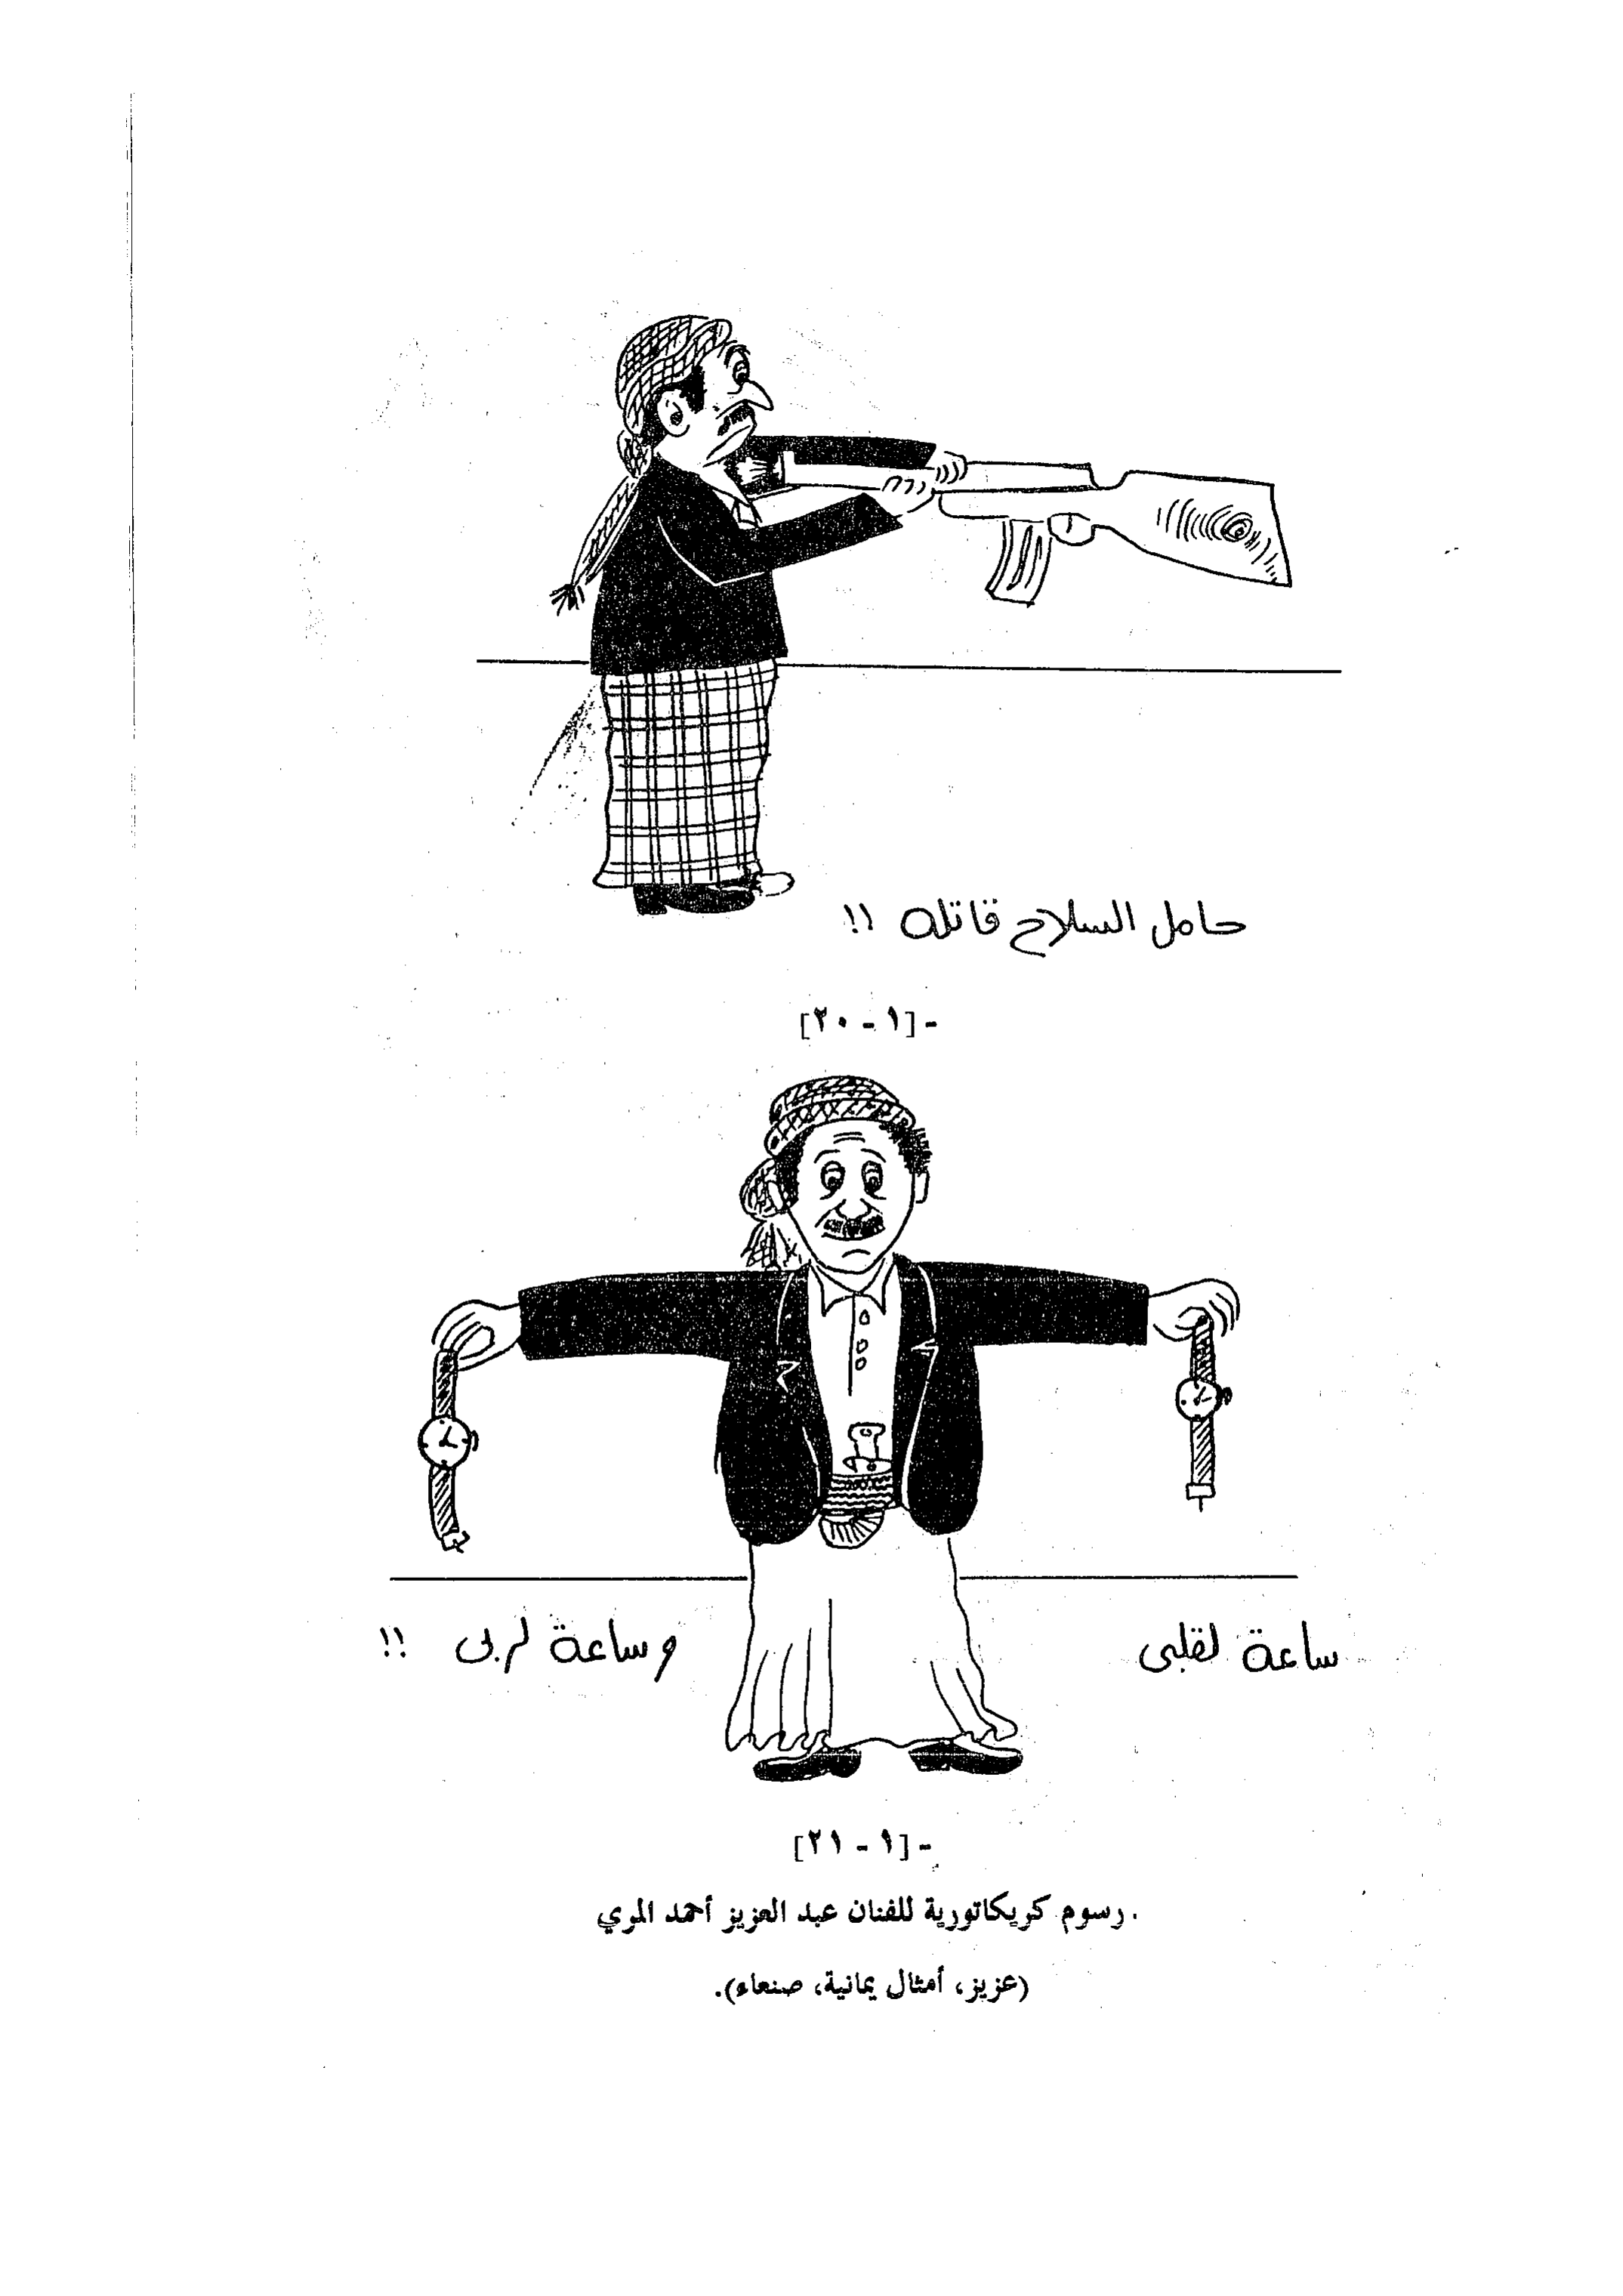 حامل السلاح قاتله !!
-[١ - ٢٠]
ساعة لقلبي وساعة لربي !!
-[١ - ٢١]
رسوم كريكاتورية للفنان عبد العزيز أحمد الموري
(عزيز، أمثال يمانية، صنعاء).